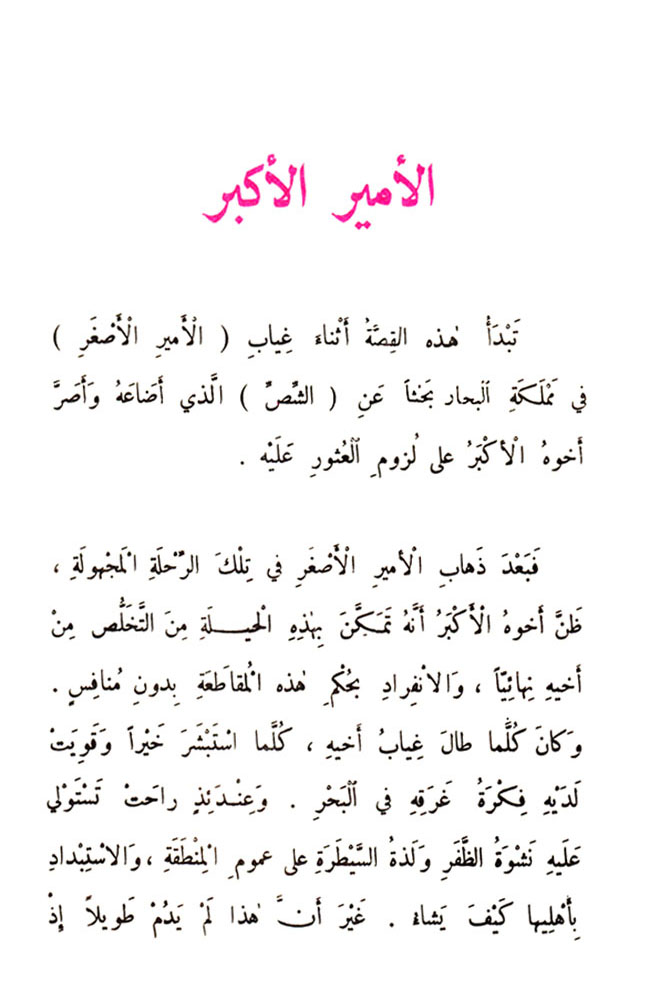 الأمير الأكبر
تَبْدَأُ هٰذه القِصَّةُ أَثْناءَ غِيابِ ( الْأَميرِ الْأَصْغَرِ )
في مَمْلَكَةِ اَلْبحار بَحْثاً عَنِ ( الشِّصِّ ) الَّذي أَضَاعَهُ وَأَصَرَّ
أَخوهُ الْأَكْبَرُ على لُزومِ اَلْعُثورِ عَلَيْه .
فَبَعْدَ ذَهابِ الْأميرِ الْأَصْغَرِ في تِلْكَ الرِّحْلَةِ الْمَجْهولَةِ ،
ظَنَّ أَخوهُ الْأَكْبَرُ أَنَّهُ تَمَكَّنَ بِهٰذِهِ الْحيـلَةِ مِنَ التَّخَلُّص مِنْ
أَخيهِ نِهائِيّاً ، وَالانْفِرادِ بِحُكْمِ هٰذه الْمُقاطَعَةِ بِدونِ مُنافِسٍ .
وَكانَ كُلَّما طالَ غِيابُ أَخيهِ ، كُلَّما اسْتَبْشَرَ خَيْراً وَقَوِيَتْ
لَدَيْهِ فِكْرَةُ غَرَقِهِ في اَلْبَحْرِ . وَعِنْـدَئِذٍ راحَتْ تَسْتَوْلي
عَلَيهِ نَشْوَةُ الظَّفَرِ وَلَذةُ السَّيْطَرَةِ على عمومِ الْمِنْطَقَةِ ، وَالاسْتِبْدادِ
بِأَهْلِيها كَيْفَ يَشاءُ . غَيْرَ أَنَّ هٰذا لَمْ يَدُمْ طَويلاً إِذْ